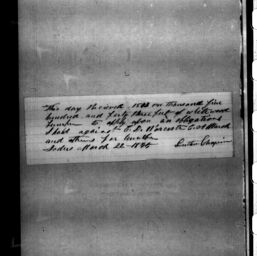 This day Received 1543 one thousand five
hundred and forty three feet of white wood
lumber to apply upon an obligation
I hold against E. D. Worcester & A March
and others for lumber
March 22 1845 Luther Chapin